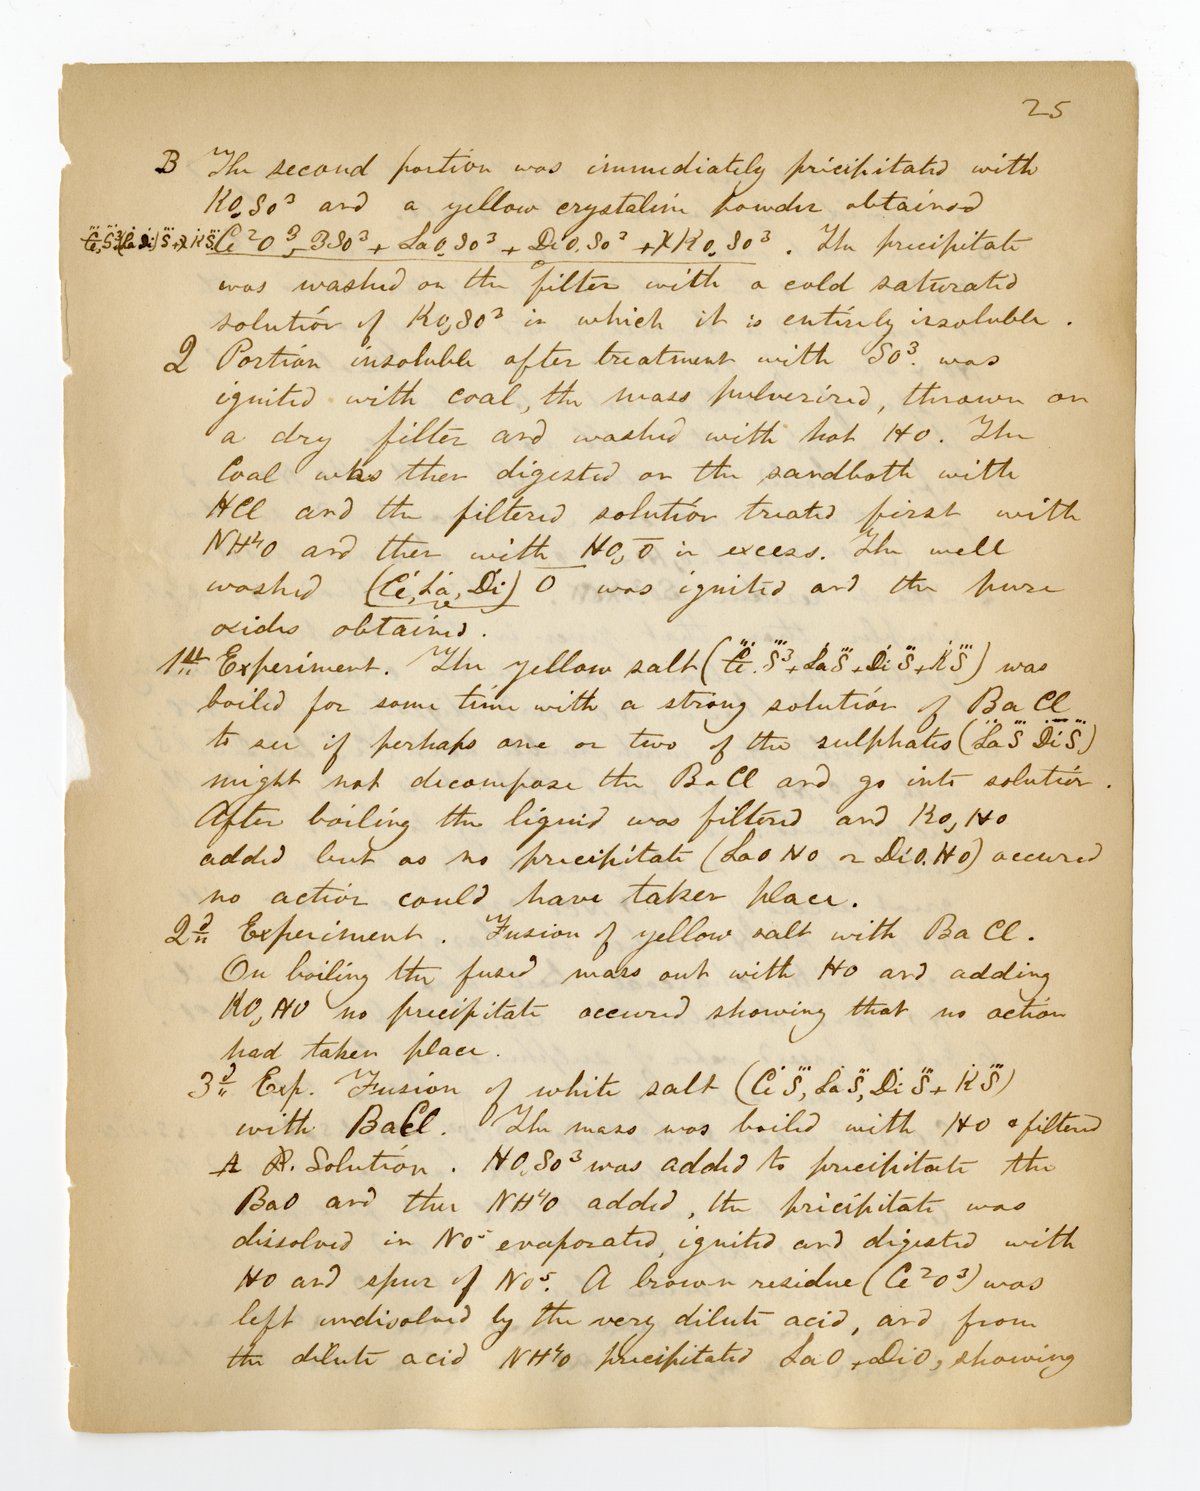 25
B The second portion was immediately pricipitated with
KO,SO³ and a yellow crystaline powder obtained
Ce²O³,3SO³ + LaO,SO³ + DiO,SO³ + XKO,SO³. The precipitate
was washed on the filter with a cold saturated
solution of KO,SO³ in which it is entirely insoluble.
2 Portion insoluble after treatment with SO³. was
ignited with coal, the mass pulverized, thrown on
a dry filter and washed with hot HO. The
Coal was then digested on the sandbath with
HCl and the filtered solution treated first with
NH⁴O and then with HO,O̅ in excess. The well
washed (Ċe, L̇a, Ḋi) O̅ was ignited and the pure
oxides obtained.
1st Experiment. The yellow salt (C̶e. S⃛³ + L̇aS⃛ + ḊiS⃛ + K̇S⃛) was
boiled for some time with a strong solution of BaCl
to see if perhaps one or two of the sulphates (L̇aS⃛ ḊiS⃛)
might not decompose the BaCl and go into solution.
After boiling the liquid was filtered and KO,HO
added but as no precipitate (LaO HO or DiO.HO) occured
no action could have taken place.
2d Experiment. Fusion of yellow salt with BaCl.
On boiling the fused mass out with HO and adding
KO,HO no precipitate occured showing that no action
had taken place.
3d Exp. Fusion of white salt (ĊeS⃛, L̇aS⃛, ḊiS⃛ + K̇S⃛)
with BaCl. The mass was boiled with HO & filtered
A. Solution. HO,SO³ was added to precipitate the
BaO and then NH⁴O added, the pricipitate was
dissolved in NO⁵ evaporated, ignited and digested with
HO and spur of NO⁵. A brown residue (Ce²O³) was
left undisolved by the very dilute acid, and from
the dilute acid NH⁴O precipitated LaO + DiO, showing